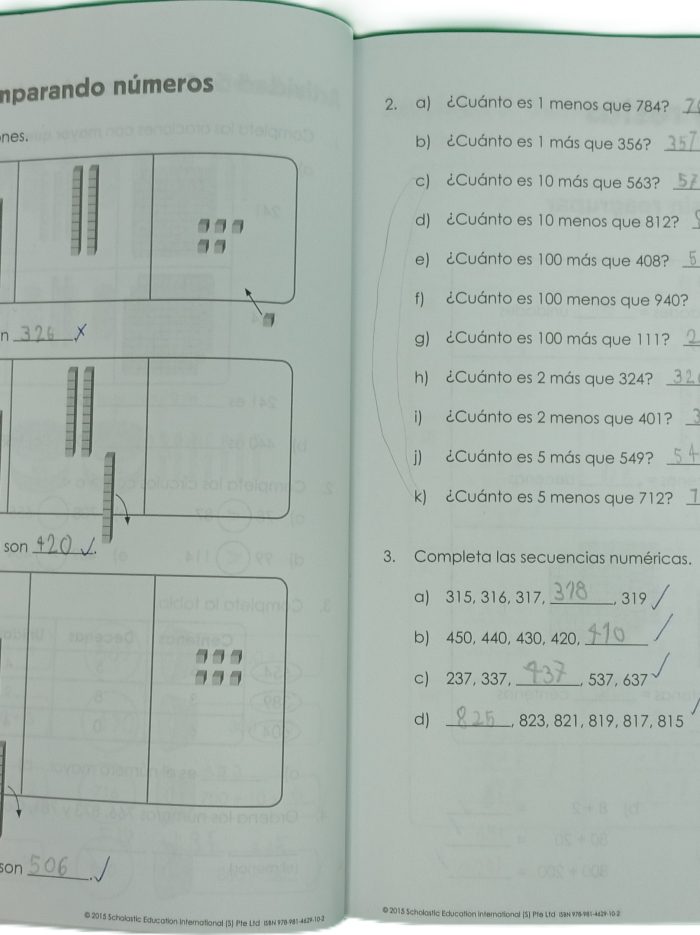 mparando números
nes.
n 326
son 420.
son 506.
© 2015 Scholastic Education International (S) Pte Ltd ISBN 978-981-4629-10-2
2. a) ¿Cuánto es 1 menos que 784?
b) ¿Cuánto es 1 más que 356? 357
c) ¿Cuánto es 10 más que 563? 57
d) ¿Cuánto es 10 menos que 812?
e) ¿Cuánto es 100 más que 408? 5
f) ¿Cuánto es 100 menos que 940?
g) ¿Cuánto es 100 más que 111? 2
h) ¿Cuánto es 2 más que 324? 32
i) ¿Cuánto es 2 menos que 401? 3
j) ¿Cuánto es 5 más que 549? 54
k) ¿Cuánto es 5 menos que 712?
3. Completa las secuencias numéricas.
a) 315, 316, 317, 318, 319
b) 450, 440, 430, 420, 410
c) 237, 337, 437, 537, 637
d) 825, 823, 821, 819, 817, 815
© 2015 Scholastic Education International (S) Pte Ltd ISBN 978-981-4629-10-2